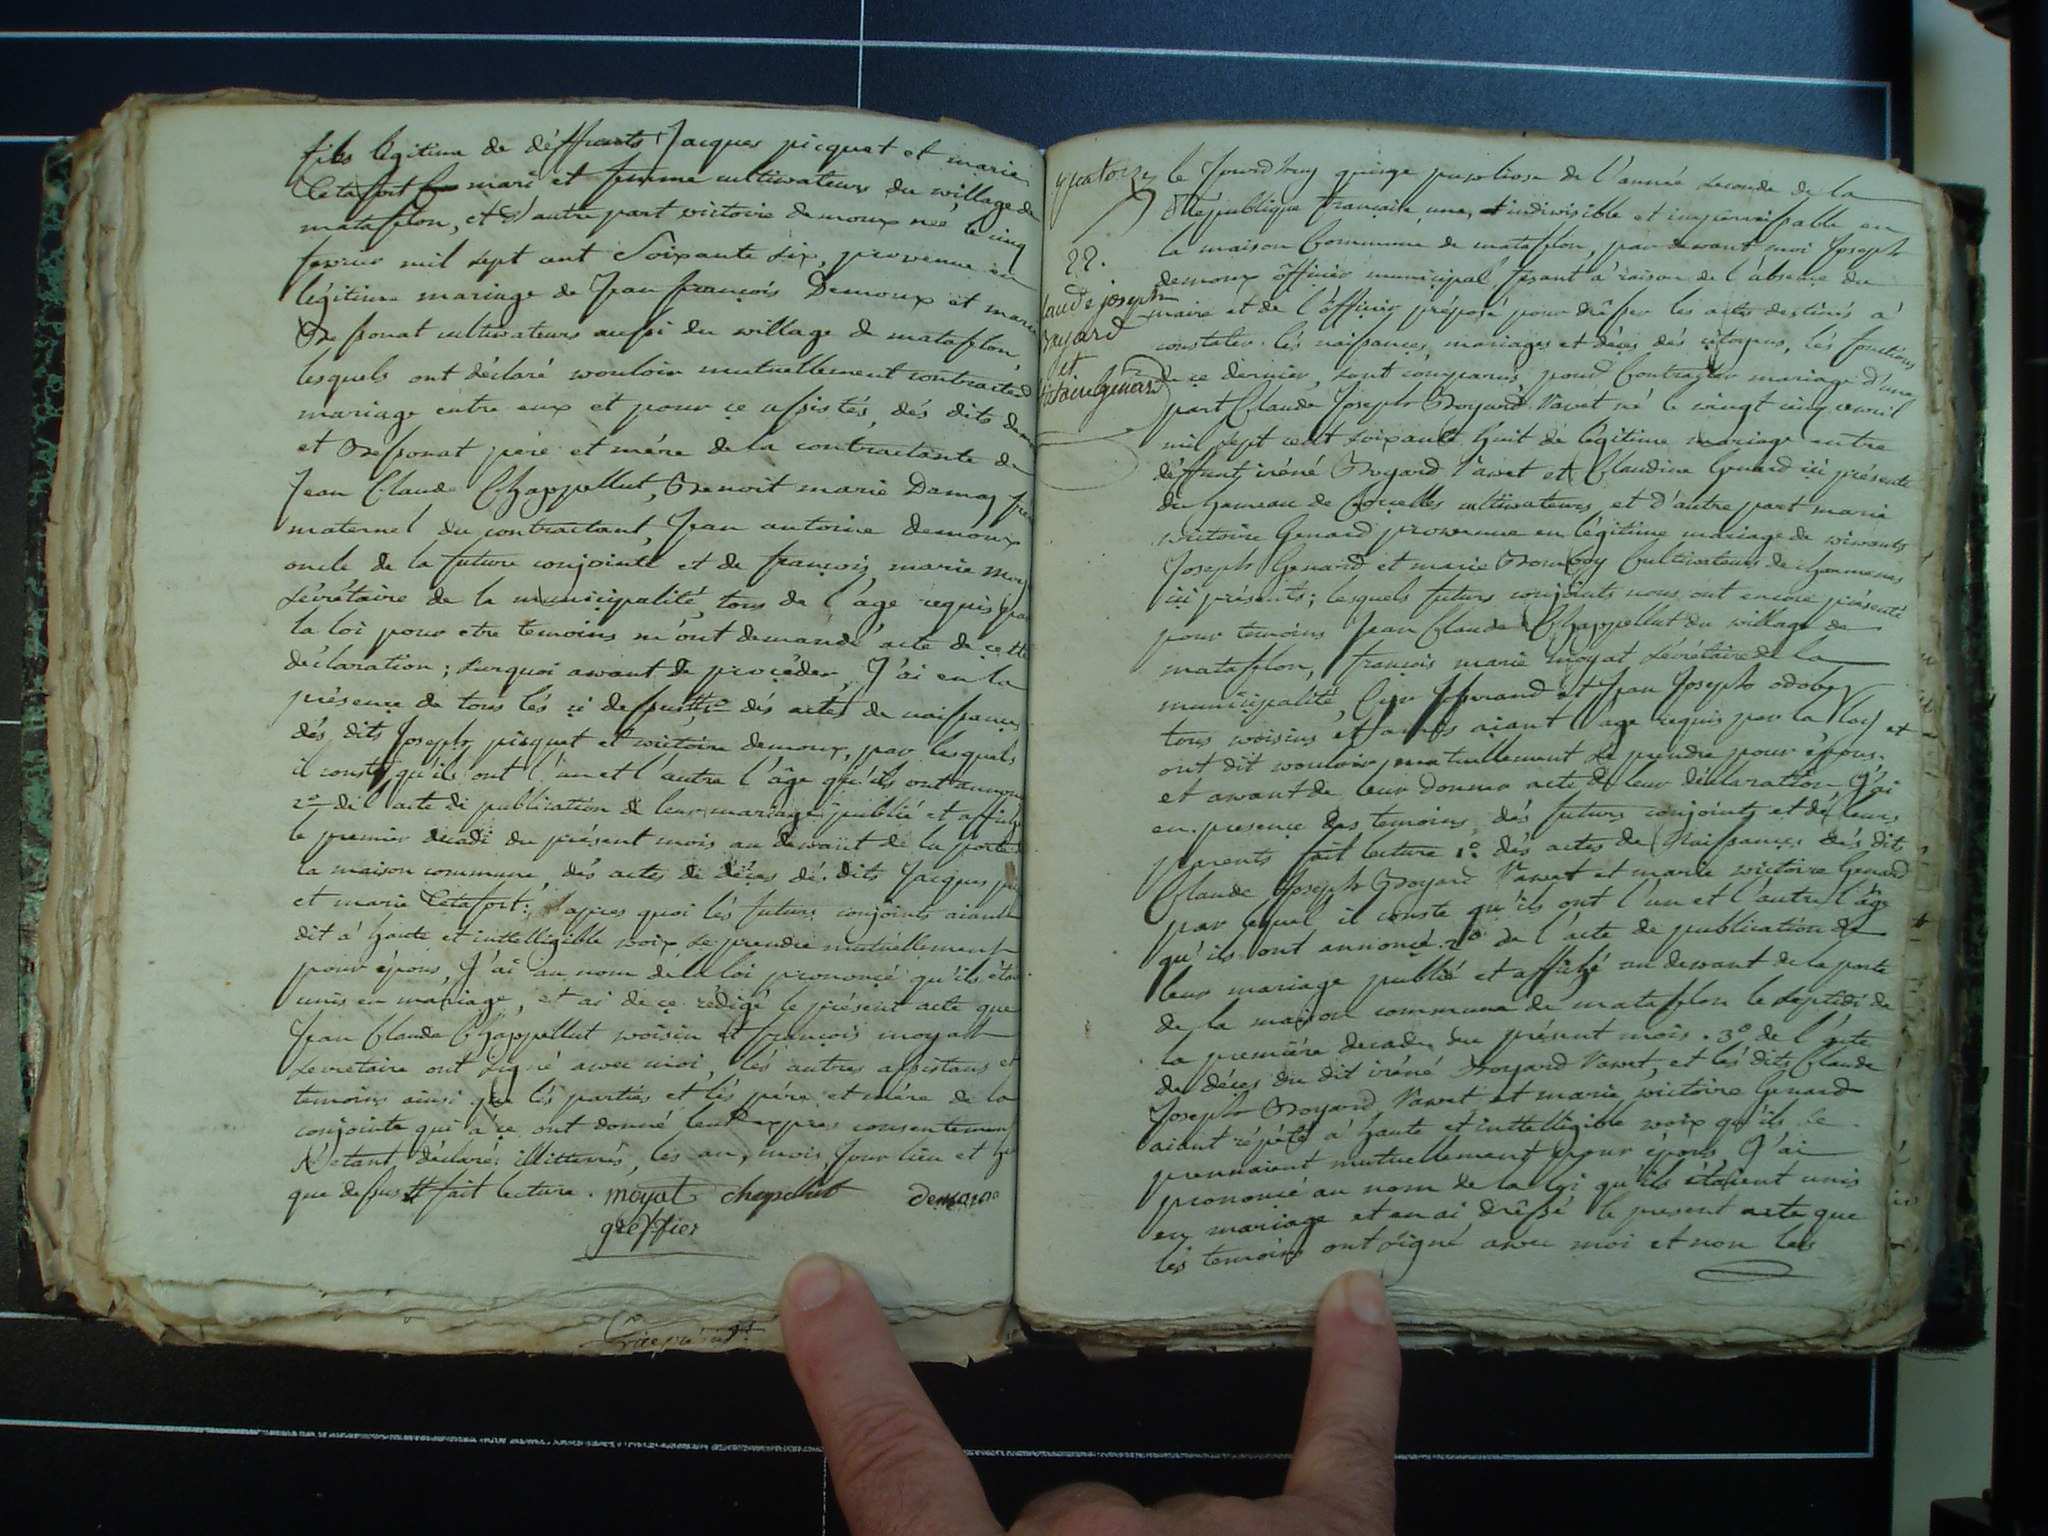 fils légitime de déffunts Jacques picquet et marie
Cetafort mari et femme cultivateurs du village de
mataflon, et d'autre part victoire demoux née le cinq
fevrier mil sept cent soixante six, provenue en
légitime mariage de Jean françois Demoux et marie
Bessonat cultivateurs aussi du village de mataflon
lesquels ont déclaré vouloir mutuellement contracter
mariage entre eux et pour ce assistés, dés dits
et Bessonat père et mère de la contractante de
Jean Claude Chappellut, Benoit marie Damaz
maternel du contractant, Jean antoine demoux
oncle de la future conjointe et de françois marie
sécrétaire de la municipalité, tous de l'age requis par
la loi pour etre temoins m'ont demandé acte de cette
déclaration; surquoi avant de procéder, J'ai en la
présence de tous lés ci dessus dés actes de naissances
dés dits Joseph picquet et victoire demoux, par lesquels
il conste qu'ils ont l'un et l'autre l'âge qu'ils ont
2° de l'acte de publication de leur mariage publié et affiché
le premier decadi du présent mois au devant de la porte
la maison commune, dés actes de décès dés dits Jacques
et marie Cetafort; apres quoi lés futurs conjoints aiant
dit à haute et intelligible voix se prendre mutuellement
pour épous, J'ai au nom de la loi prononcé qu'ils
unis en mariage, et ai de ce rédigé le présent acte que
Jean Claude Chappellut voisin et françois moyat
secretaire ont signé avec moi, lés autres assistans et
temoins ainsi que lés parties et lés père et mère de la
conjointe qui à ce ont donné leur exprès consentement
s'étant déclarés illitterés, lés an, mois, Jour lieu et
que dessus fait lecture. moyat chapellut demoux
greffier
quatorze le Jourd'huy quinze pluviose de l'année seconde de la
République française une, et indivisible et imperissable en
la maison Commune de mataflon, par devant moi Joseph
22.
demoux officier municipal fesant à raison de l'absence du
claude joseph maire et de l'officier préposé pour drésser les actes destinés à
Boyard constater lés naissances, mariages et décès dés citoyens, lés fonctions
et
de ce dernier, sont comparus, pour Contracter mariage d'une
victoire Genard
part Claude Joseph Boyard Vavet né le vingt cinq avril
mil sept cent soixante huit de légitime mariage entre
déffunt iréné Boyard Vavet et Claudine Genard ici présente
du hameau de Corcelles cultivateurs, et d'autre part marie
victoire Genard provenue en légitime mariage de vivants
Joseph Genard et marie Cultivateurs de
ici présents; lesquels futurs conjoints nous ont encore présenté
pour temoins Jean Claude Chappellut du village de
mataflon, françois marie moyat sécrétaire de la
municipalité, et Jean Joseph odobez
tous voisins et amis aiant l'age requis par la loy et
ont dit vouloir mutuellement se prendre pour épous.
et avant de leur donner acte de leur déclaration J'ai
en presence des temoins, dés futurs conjoints et de leurs
parents fait lecture 1°. dés actes de Naissances dés dits
Claude Joseph Boyard Vavet et marie victoire Genard
par lequel il conste qu'ils ont l'un et l'autre l'âge
qu'ils ont annoncé 2° de l'acte de publication de
leur mariage publié et affiché au devant de la porte
de la maison commune de mataflon le septidi de
la première decade du présent mois. 3° de l'acte
de décès du dit iréné Boyard Vavet, et lés dits Claude
Joseph Boyard Vavet et marie victoire Genard
aiant répété à haute et intelligible voix qu'ils se
prennaient mutuellement pour épous, J'ai
prononcé au nom de la loi qu'ils étaient unis
en mariage et en ai drêssé le present acte que
lés temoins ont signé avec moi et non les